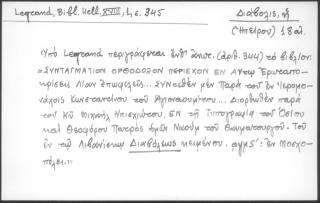 Legrand, Bibl. Hell. XVIII, I, σ. 345
Διάβολις, ἡ
(Ἠπείρου) 18 αἰ.
Ὑπὸ Legrand περιγράφεται ἐνθ' ἀνωτ. (ἀριθ. 344) τὸ βιβλίον:
«ΣΥΝΤΑΓΜΑΤΙΟΝ ΟΡΘΟΔΟΞΟΝ ΠΕΡΙΕΧΟΝ ΕΝ ΑΥΤῷ Ἐρωταπο-
κρίσεις Λίαν ἐπωφελεῖς... Συντεθὲν μὲν Παρὰ τοῦ ἐν Ἱερομο-
νάχοις Κωνσταντίνου τοῦ Ἁγιοναουμίτου... Διορθωθὲν παρὰ
τοῦ Κῦ Μιχαὴλ Ἠπισχιώτου. ΕΝ τῇ Τυπογραφίᾳ τοῦ Ὁσίου
καὶ Θεοφόρου Πατρὸς ἡμῶν Ναοὺμ τοῦ Θαυματουργοῦ. Τοῦ
ἐν τῷ Λιβανίσκῳ Διαβόλεως κειμένου. αψμϚ': ἐν Μοσχο-
πόλει.»